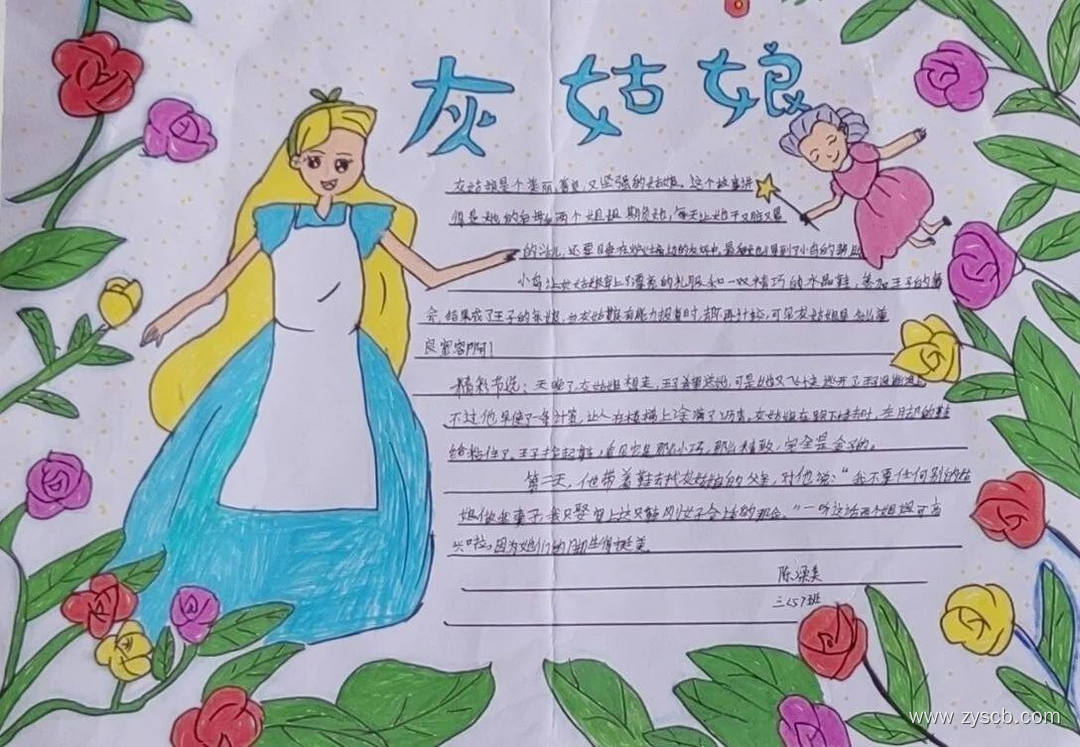 灰姑娘
灰姑娘是个美丽,善良,又坚强的好姑娘。这个故事讲
得是她的后母和两个姐姐欺负她,每天让她干又脏又累
的活儿,还要睡在
小鸟让灰姑娘穿上了漂亮的礼服和一双精巧的水晶鞋,参加王子的舞
会,结果成了王子的新娘,当灰姑娘有能力报复时,却不再计较,可见灰姑娘是多么善
良宽容啊!
精彩片段:天晚了,灰姑娘想走,王子
不过他早使了一条计策,让人在楼梯上涂满了沥青,灰姑娘在跑下楼去时,左脚的鞋
给粘住了,王子拾起鞋,看见它是那么小巧,那么精致,完全是金子的。
第二天,他带着鞋去找灰姑娘的父亲,对他说:“我不要任何别的姑
娘做我妻子,我只娶穿上这只鞋刚好合适的那个。”一听这话两个姐姐可高
兴啦,因为她们的脚生得挺美
三<5>班
www.zyscb.com